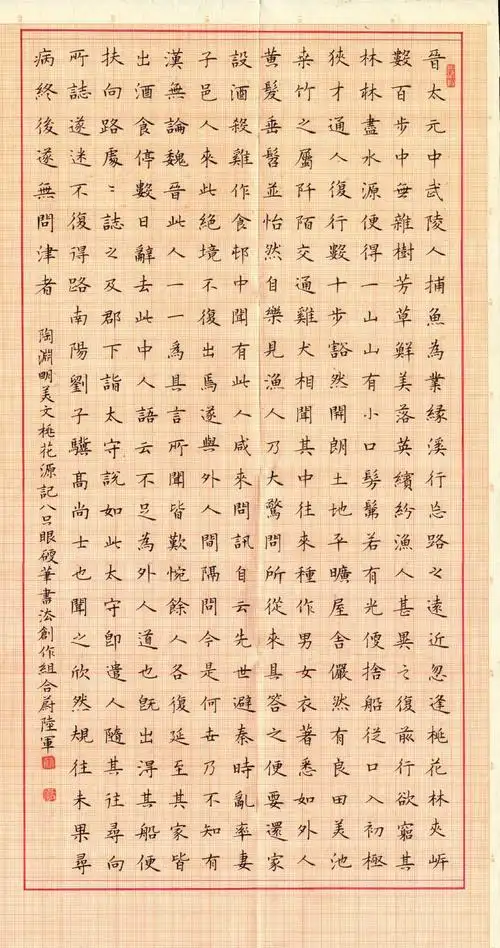 晉太元中武陵人捕魚為業緣溪行忘路之遠近忽逢桃花林夾岸
數百步中無雜樹芳草鮮美落英繽紛漁人甚異之復前行欲窮其
林林盡水源便得一山山有小口髣髴若有光便捨船從口入初極
狹才通人復行數十步豁然開朗土地平曠屋舍儼然有良田美池
桒竹之屬阡陌交通雞犬相聞其中往來種作男女衣著悉如外人
黄髮垂髫並怡然自樂見漁人乃大驚問所從來具答之便要還家
設酒殺雞作食邨中聞有此人咸來問訊自云先世避秦時亂率妻
子邑人來此絕境不復出焉遂與外人間隔問今是何世乃不知有
漢無論魏晉此人一一為具言所聞皆歎惋餘人各復延至其家皆
出酒食停數日辭去此中人語云不足為外人道也既出得其船便
扶向路處〻誌之及郡下詣太守說如此太守即遣人隨其往尋向
所誌遂迷不復得路南陽劉子驥高尚士也聞之欣然規往未果尋
病終後遂無問津者
陶淵明美文桃花源記八只眼硬筆書法創作組合蔚陸軍